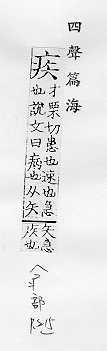 四聲篇海
疾
才栗切患也速也急
也說文曰病也从矢
矢急
疾也
疒部